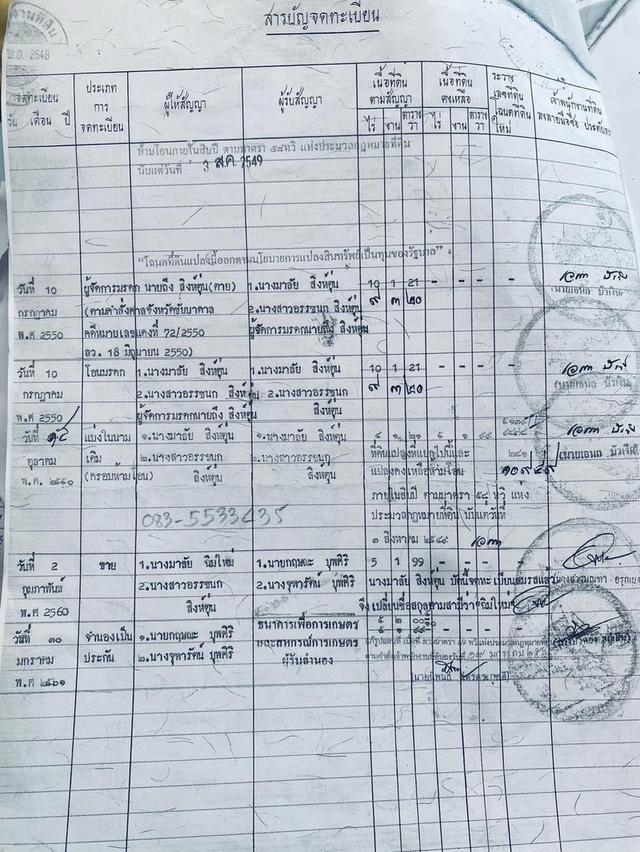 สารบัญจดทะเบียน
พ.ย. 2548
จดทะเบียน
วัน เดือน ปี
ประเภท
การ
จดทะเบียน
ผู้ให้สัญญา
ผู้รับสัญญา
เนื้อที่ดิน
ตามสัญญา
ไร่ งาน ตารางวา
เนื้อที่ดิน
คงเหลือ
ไร่ งาน ตารางวา
ระวาง
เลขที่ดิน
โฉนดที่ดิน
ใหม่
เจ้าพนักงานที่ดิน
ลงลายมือชื่อ ประทับตรา
ห้ามโอนภายในสิบปี ตามมาตรา ๕๘ทวิ แห่งประมวลกฎหมายที่ดิน
นับแต่วันที่ 3 ส.ค. 2549
"โฉนดที่ดินแปลงนี้ออกตามนโยบายการแปลงสินทรัพย์เป็นทุนของรัฐบาล"
วันที่ 10 ผู้จัดการมรดก นายถึง สิงห์ตุ่น(ตาย) 1.นางมาลัย สิงห์ตุ่น 10 1 21 - - - -
กรกฎาคม (ตามคำสั่งศาลจังหวัดชัยบาดาล 2.นางสาวอรรชนก สิงห์ตุ่น ๙ ๓ ๒๐
พ.ศ 2550 คดีหมายเลขแดงที่ 72/2550 ผู้จัดการมรดกนายถึง สิงห์ตุ่น
ลว. 18 มิถุนายน 2550)
วันที่ 10 โอนมรดก 1.นางมาลัย สิงห์ตุ่น 1.นางมาลัย สิงห์ตุ่น 10 1 21 - - - -
กรกฎาคม 2.นางสาวอรรชนก สิงห์ตุ่น 2.นางสาวอรรชนก ๙ ๓ ๒๐
พ.ศ 2550 ผู้จัดการมรดกนายถึง สิงห์ตุ่น สิงห์ตุ่น
วันที่ ๑๕ แบ่งในนาม ๑.นางมาลัย สิงห์ตุ่น ๑.นางมาลัย สิงห์ตุ่น ๕ ๑ ๒๑ ๕ ๑ ๙๙
ตุลาคม เดิม ๒.นางสาวอรรชนก ๒.นางสาวอรรชนก ที่ดินแปลงที่แยกไปนี้และ
พ.ศ. ๒๕๕๐ (ครอบห้ามโอน) สิงห์ตุ่น สิงห์ตุ่น แปลงคงเหลือห้ามโอน ๑๐๙๔๙
ภายในสิบปี ตามมาตรา ๕๘ ทวิ แห่ง
083-5533435
ประมวลกฎหมายที่ดิน นับแต่วันที่
๓ สิงหาคม ๒๕๔๙
วันที่ 2 ขาย 1.นางมาลัย ฉิมใหม่ 1.นายกฤษณะ บุพศิริ 5 1 99 - - - -
กุมภาพันธ์ 2.นางสาวอรรชนก 2.นางจุฑารัตน์ บุพศิริ นางมาลัย สิงห์ตุ่น บัดนี้จดทะเบียนสมรสแล้ว
พ.ศ 2560 สิงห์ตุ่น จึงเปลี่ยนชื่อสกุลตามสามีว่า "ฉิมใหม่"
วันที่ ๓๐ จำนองเป็น ๑.นายกฤษณะ บุพศิริ ธนาคารเพื่อการเกษตร
มกราคม ประกัน ๒.นางจุฑารัตน์ บุพศิริ และสหกรณ์การเกษตร
พ.ศ ๒๕๖๑ ผู้รับจำนอง